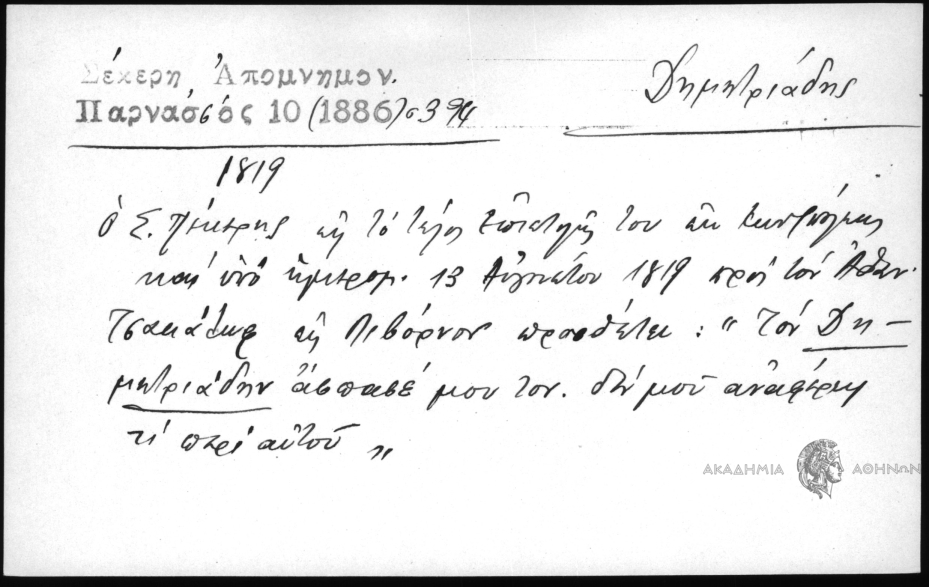 Σέκερη Ἀπομνημον.
Παρνασσός 10 (1886) σ 394
Δημητριάδης
1819
ὁ Σ. Σέκερης εἰς τό τέλος ἐπιστολῆς του ἐκ Κωνσ/πόλεως
καί ὑπό ἡμερομ. 13 Αὐγούστου 1819 πρός τόν Ἀθαν.
Τσακάλωφ εἰς Λιβόρνον προσθέτει : " Τόν Δη-
μητριάδην ἄσπασέ μου τον. δέν μοῦ ἀναφέρεις
τί περί αὐτοῦ "
ΑΚΑΔΗΜΙΑ ΑΘΗΝΩΝ